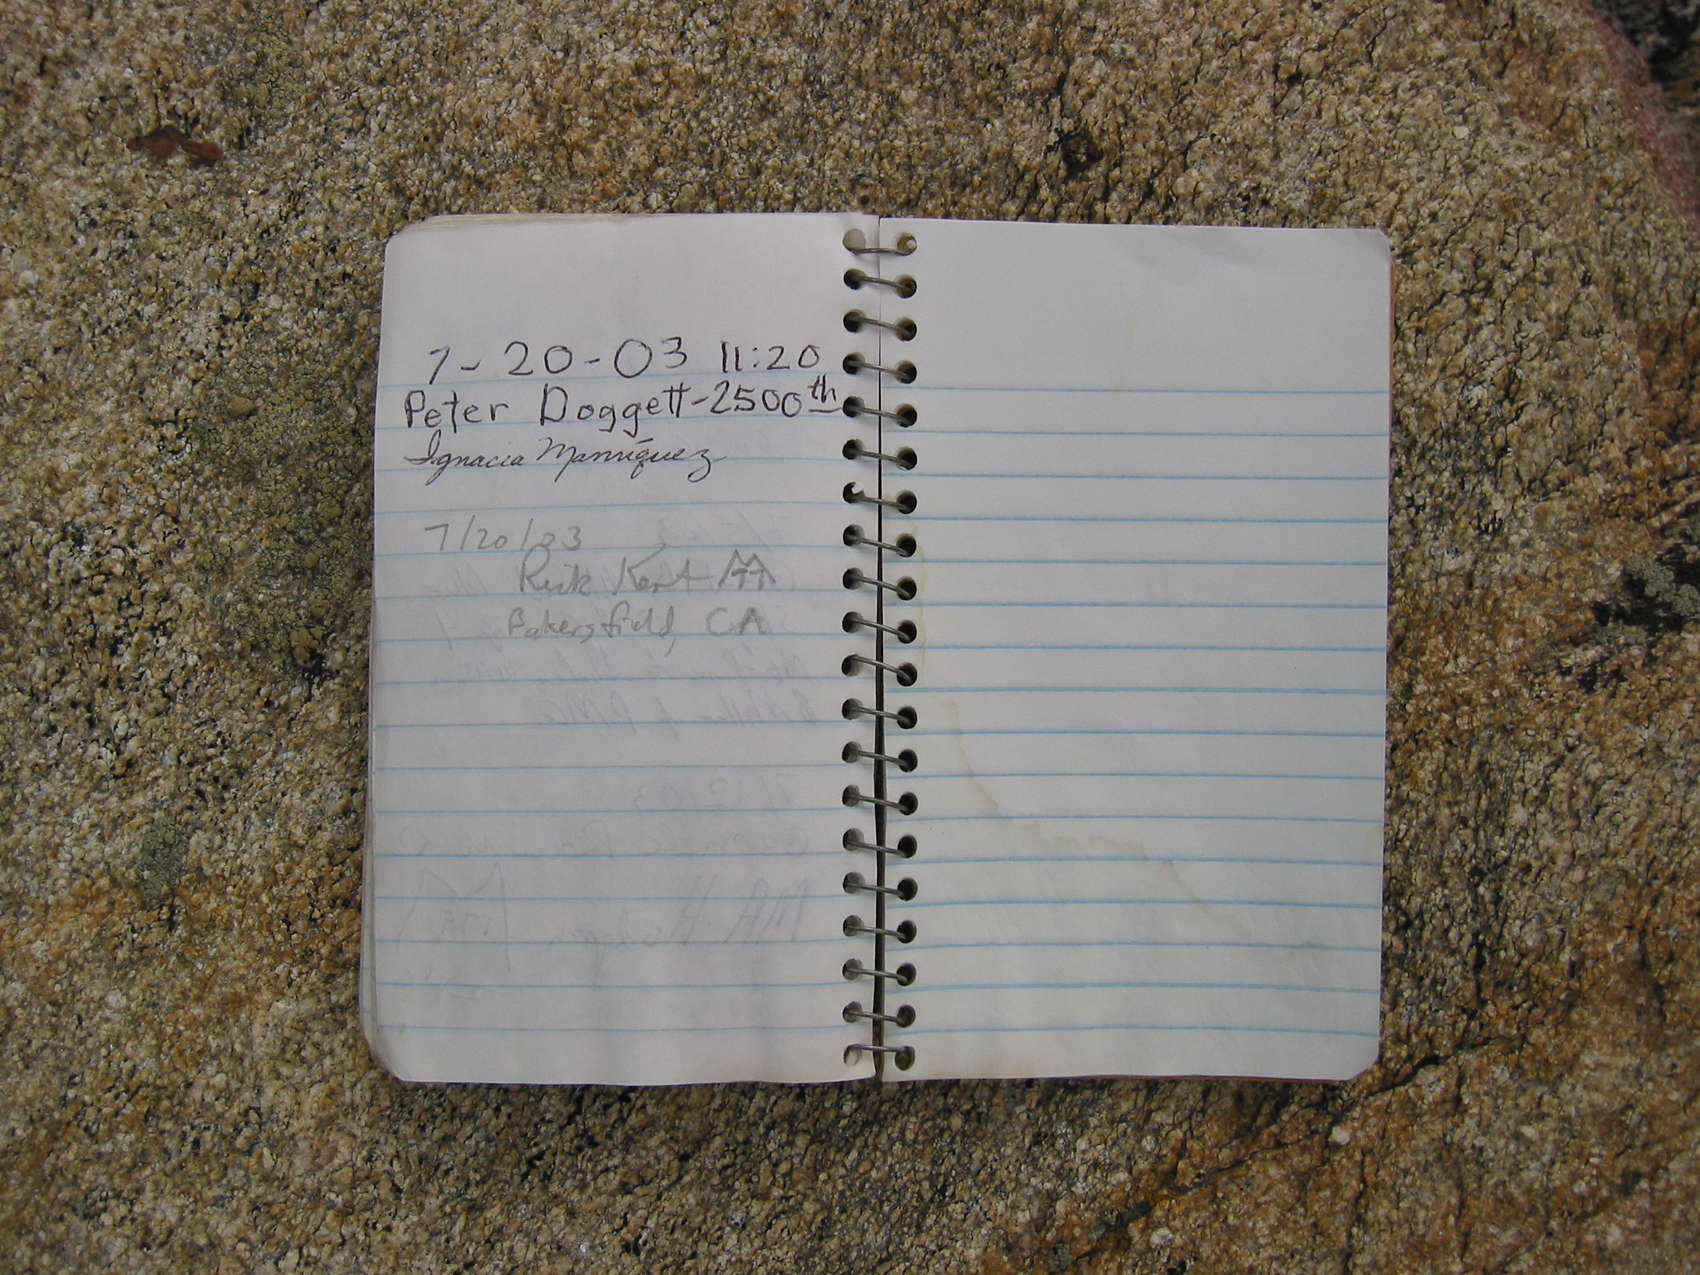 7-20-03 11:20
Peter Doggett-2500th
Ignacia Manríquez
7/20/03
Rick Kent
Bakersfield, CA